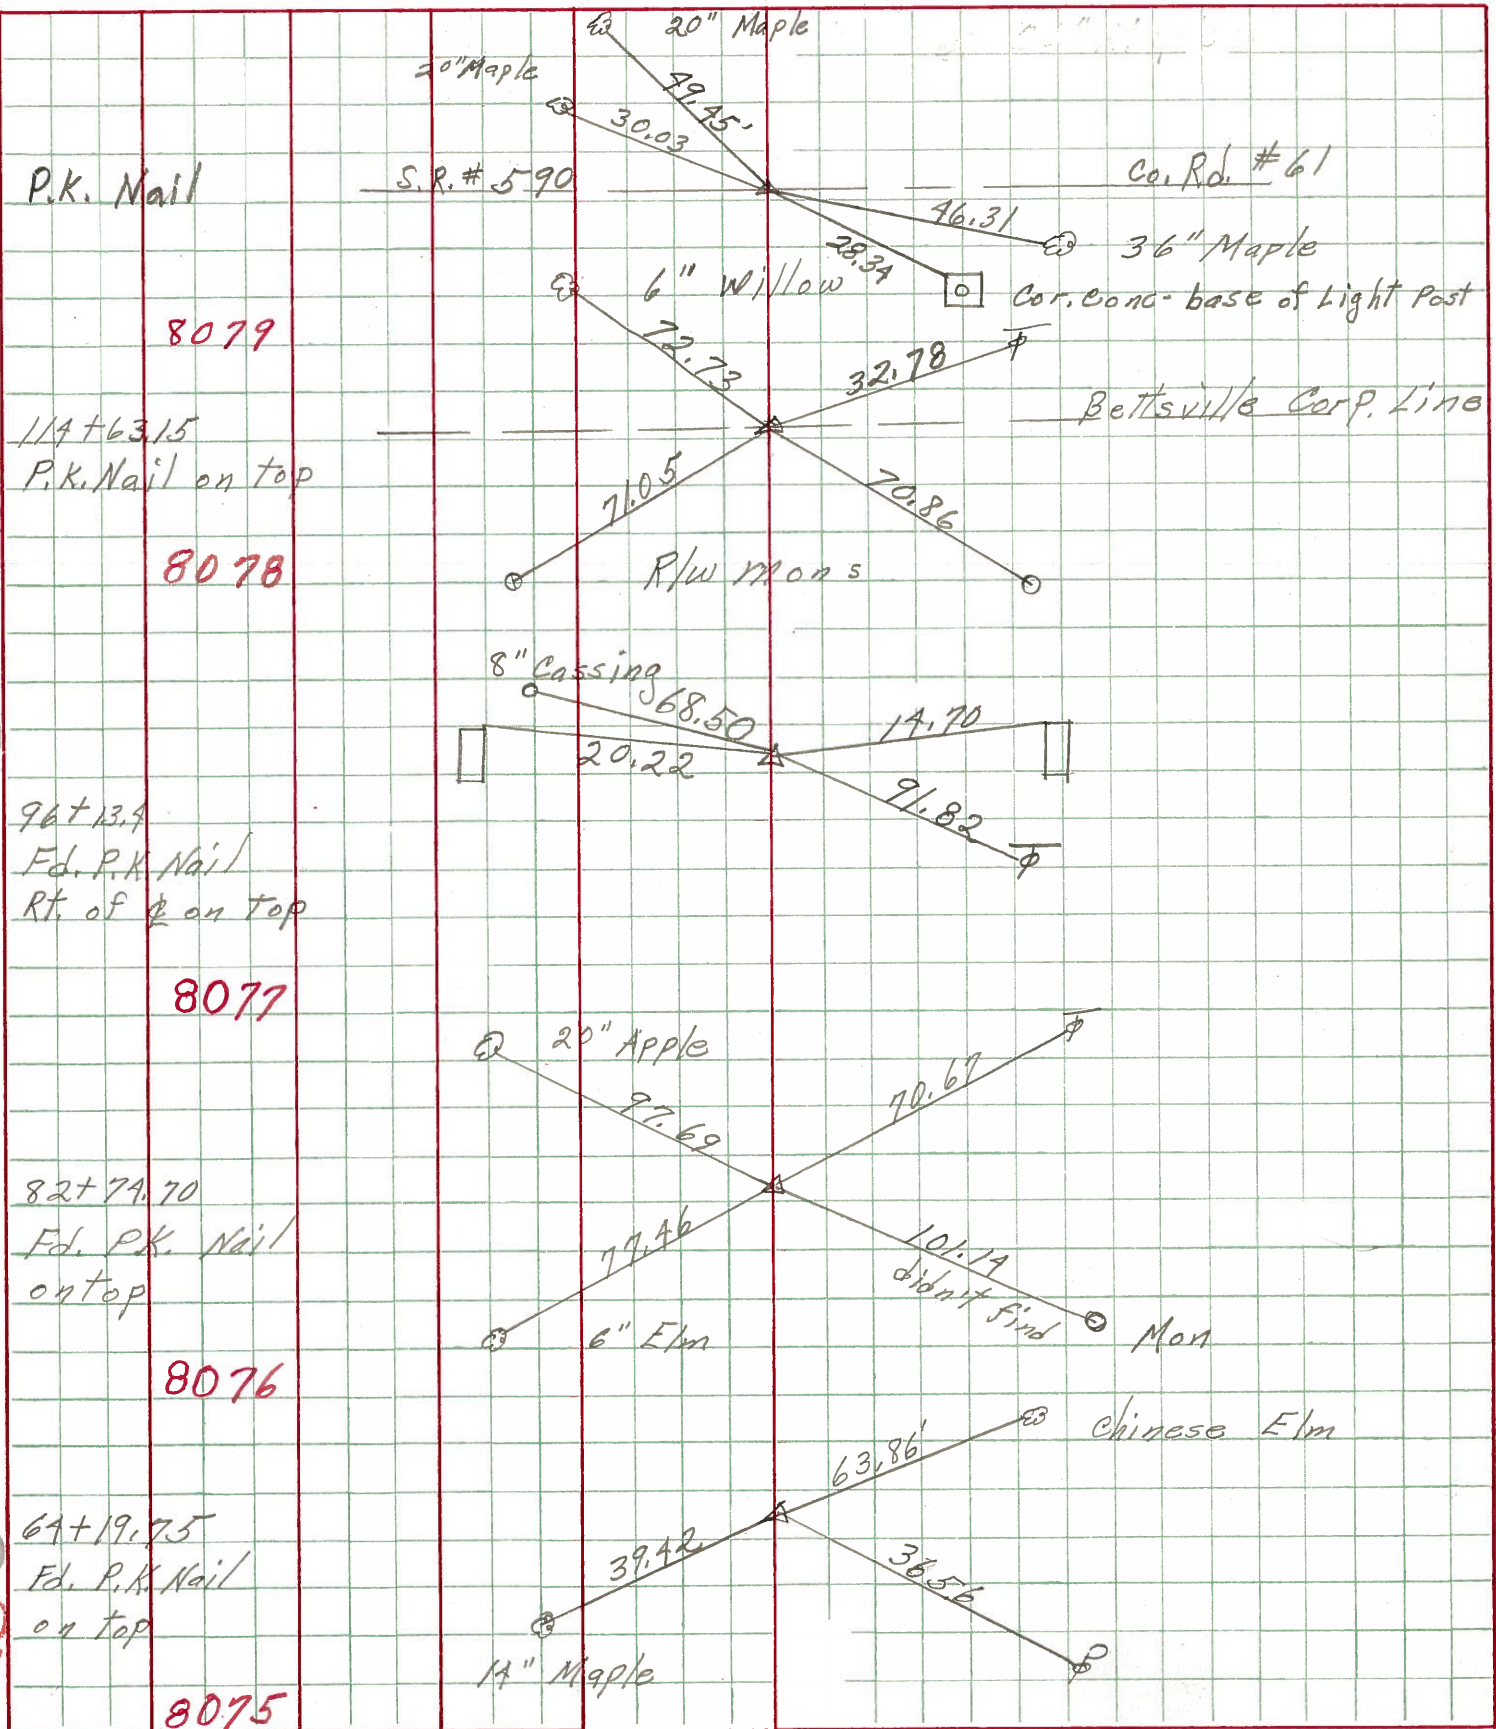 20" Maple
20" Maple
49.45'
30.03
P.K. Nail
S.R. # 590
Co. Rd. # 61
46.31
28.34
36" Maple
6" Willow
Cor. Conc- base of Light Post
8079
72.73
32.78
Bettsville Corp. Line
114+63.15
P.K. Nail on top
71.05
70.86
8078
R/W Mons
8" Cassing
68.50
14.70
20.22
91.82
96+13.4
Fd. P.K. Nail
Rt. of ℄ on Top
8077
20" Apple
97.69
70.67
82+74.70
Fd. P.K. Nail
on top
77.46
101.14
didn't find
6" Elm
Mon
8076
Chinese Elm
63.86'
64+19.75
Fd. P.K. Nail
on top
39.42
36.56
14" Maple
8075